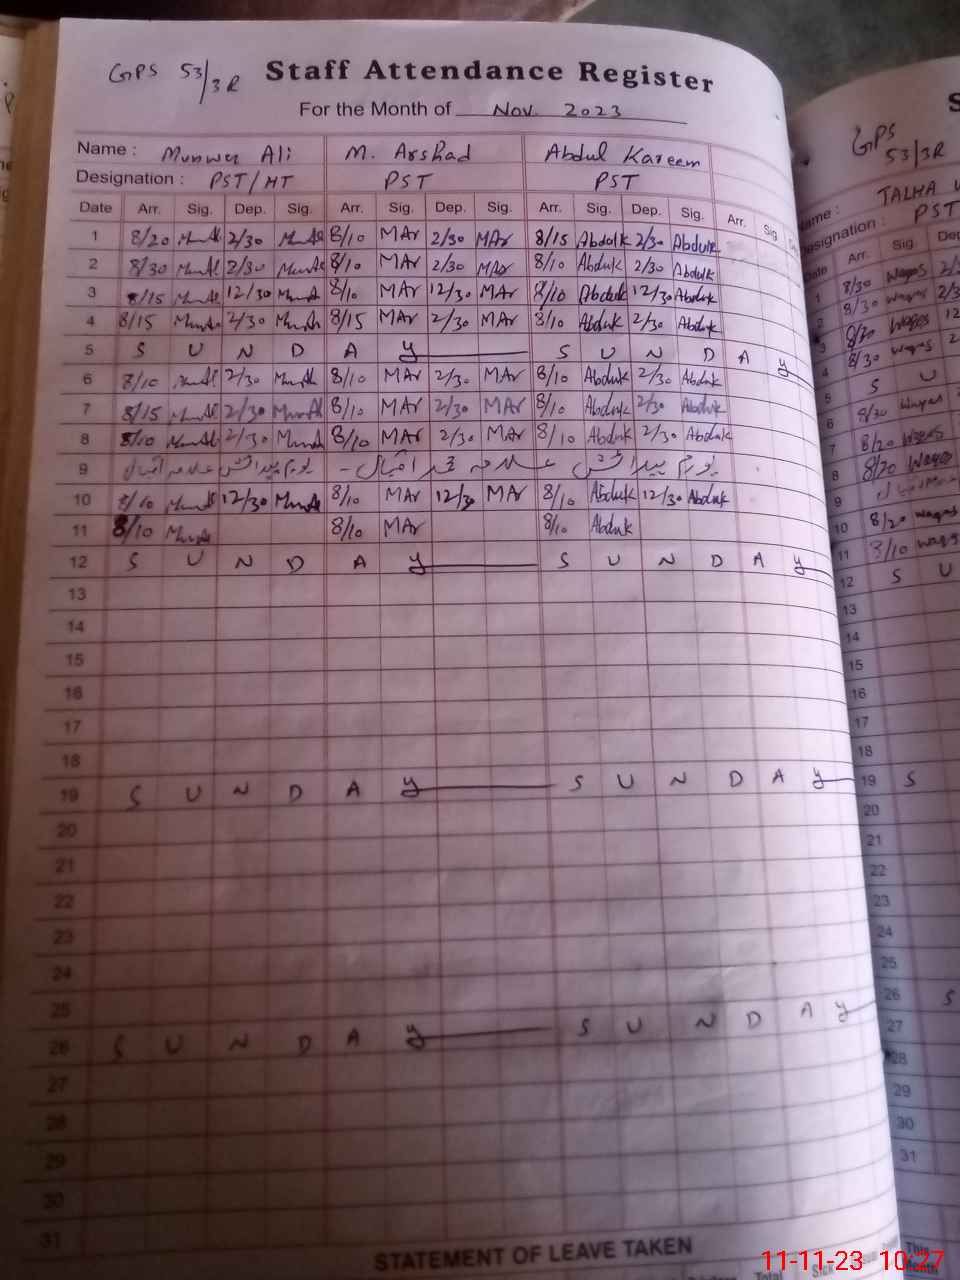 GPS 53/3R Staff Attendance Register
For the Month of Nov. 2023
Name : Munwer Ali M. Arshad Abdul Kareem
Designation : PST/HT PST PST
Date Arr. Sig. Dep. Sig. Arr. Sig. Dep. Sig. Arr. Sig. Dep. Sig. Arr. Sig.
1 8/20 2/30 8/10 MAr 2/30 MAr 8/15 Abdulk 2/30 Abdulk
2 8/30 2/30 8/10 MAr 2/30 MAr 8/10 Abdulk 2/30 Abdulk
3 8/15 12/30 8/10 MAr 12/30 MAr 8/10 Abdulk 12/30 Abdulk
4 8/15 2/30 8/15 MAr 2/30 MAr 8/10 Abdulk 2/30 Abdulk
5 S U N D A y S U N D A y
6 8/10 2/30 8/10 MAr 2/30 MAr 8/10 Abdulk 2/30 Abdulk
7 8/15 2/30 8/10 MAr 2/30 MAr 8/10 Abdulk 2/30 Abdulk
8 8/10 2/30 8/10 MAr 2/30 MAr 8/10 Abdulk 2/30 Abdulk
9 یوم پیدائش علامہ محمد اقبال - یوم پیدائش علامہ اقبال
10 8/10 12/30 8/10 MAr 12/30 MAr 8/10 Abdulk 12/30 Abdulk
11 8/10 8/10 MAr 8/10 Abdulk
12 S U N D A y S U N D A y
13
14
15
16
17
18
19 S U N D A y S U N D A y
20
21
22
23
24
25
26 S U N D A y S U N D A y
27
28
29
30
31
STATEMENT OF LEAVE TAKEN
Total Sick
S
GPS 53/3R
Name : TALHA
Designation : PST
Date Arr. Sig. Dep
1 8/30 Waqas
2 8/30 Waqas
3 8/20 Waqas
4 8/30 Waqas
5 S U
6 8/30 Waqas
7 8/20 Waqas
8 8/20 Waqas
9
10 8/20 Waqas
11 8/10 Waqas
12 S U
13
14
15
16
17
18
19 S
20
21
22
23
24
25
26 S
27
28
29
30
31
This Month
11-11-23 10:27